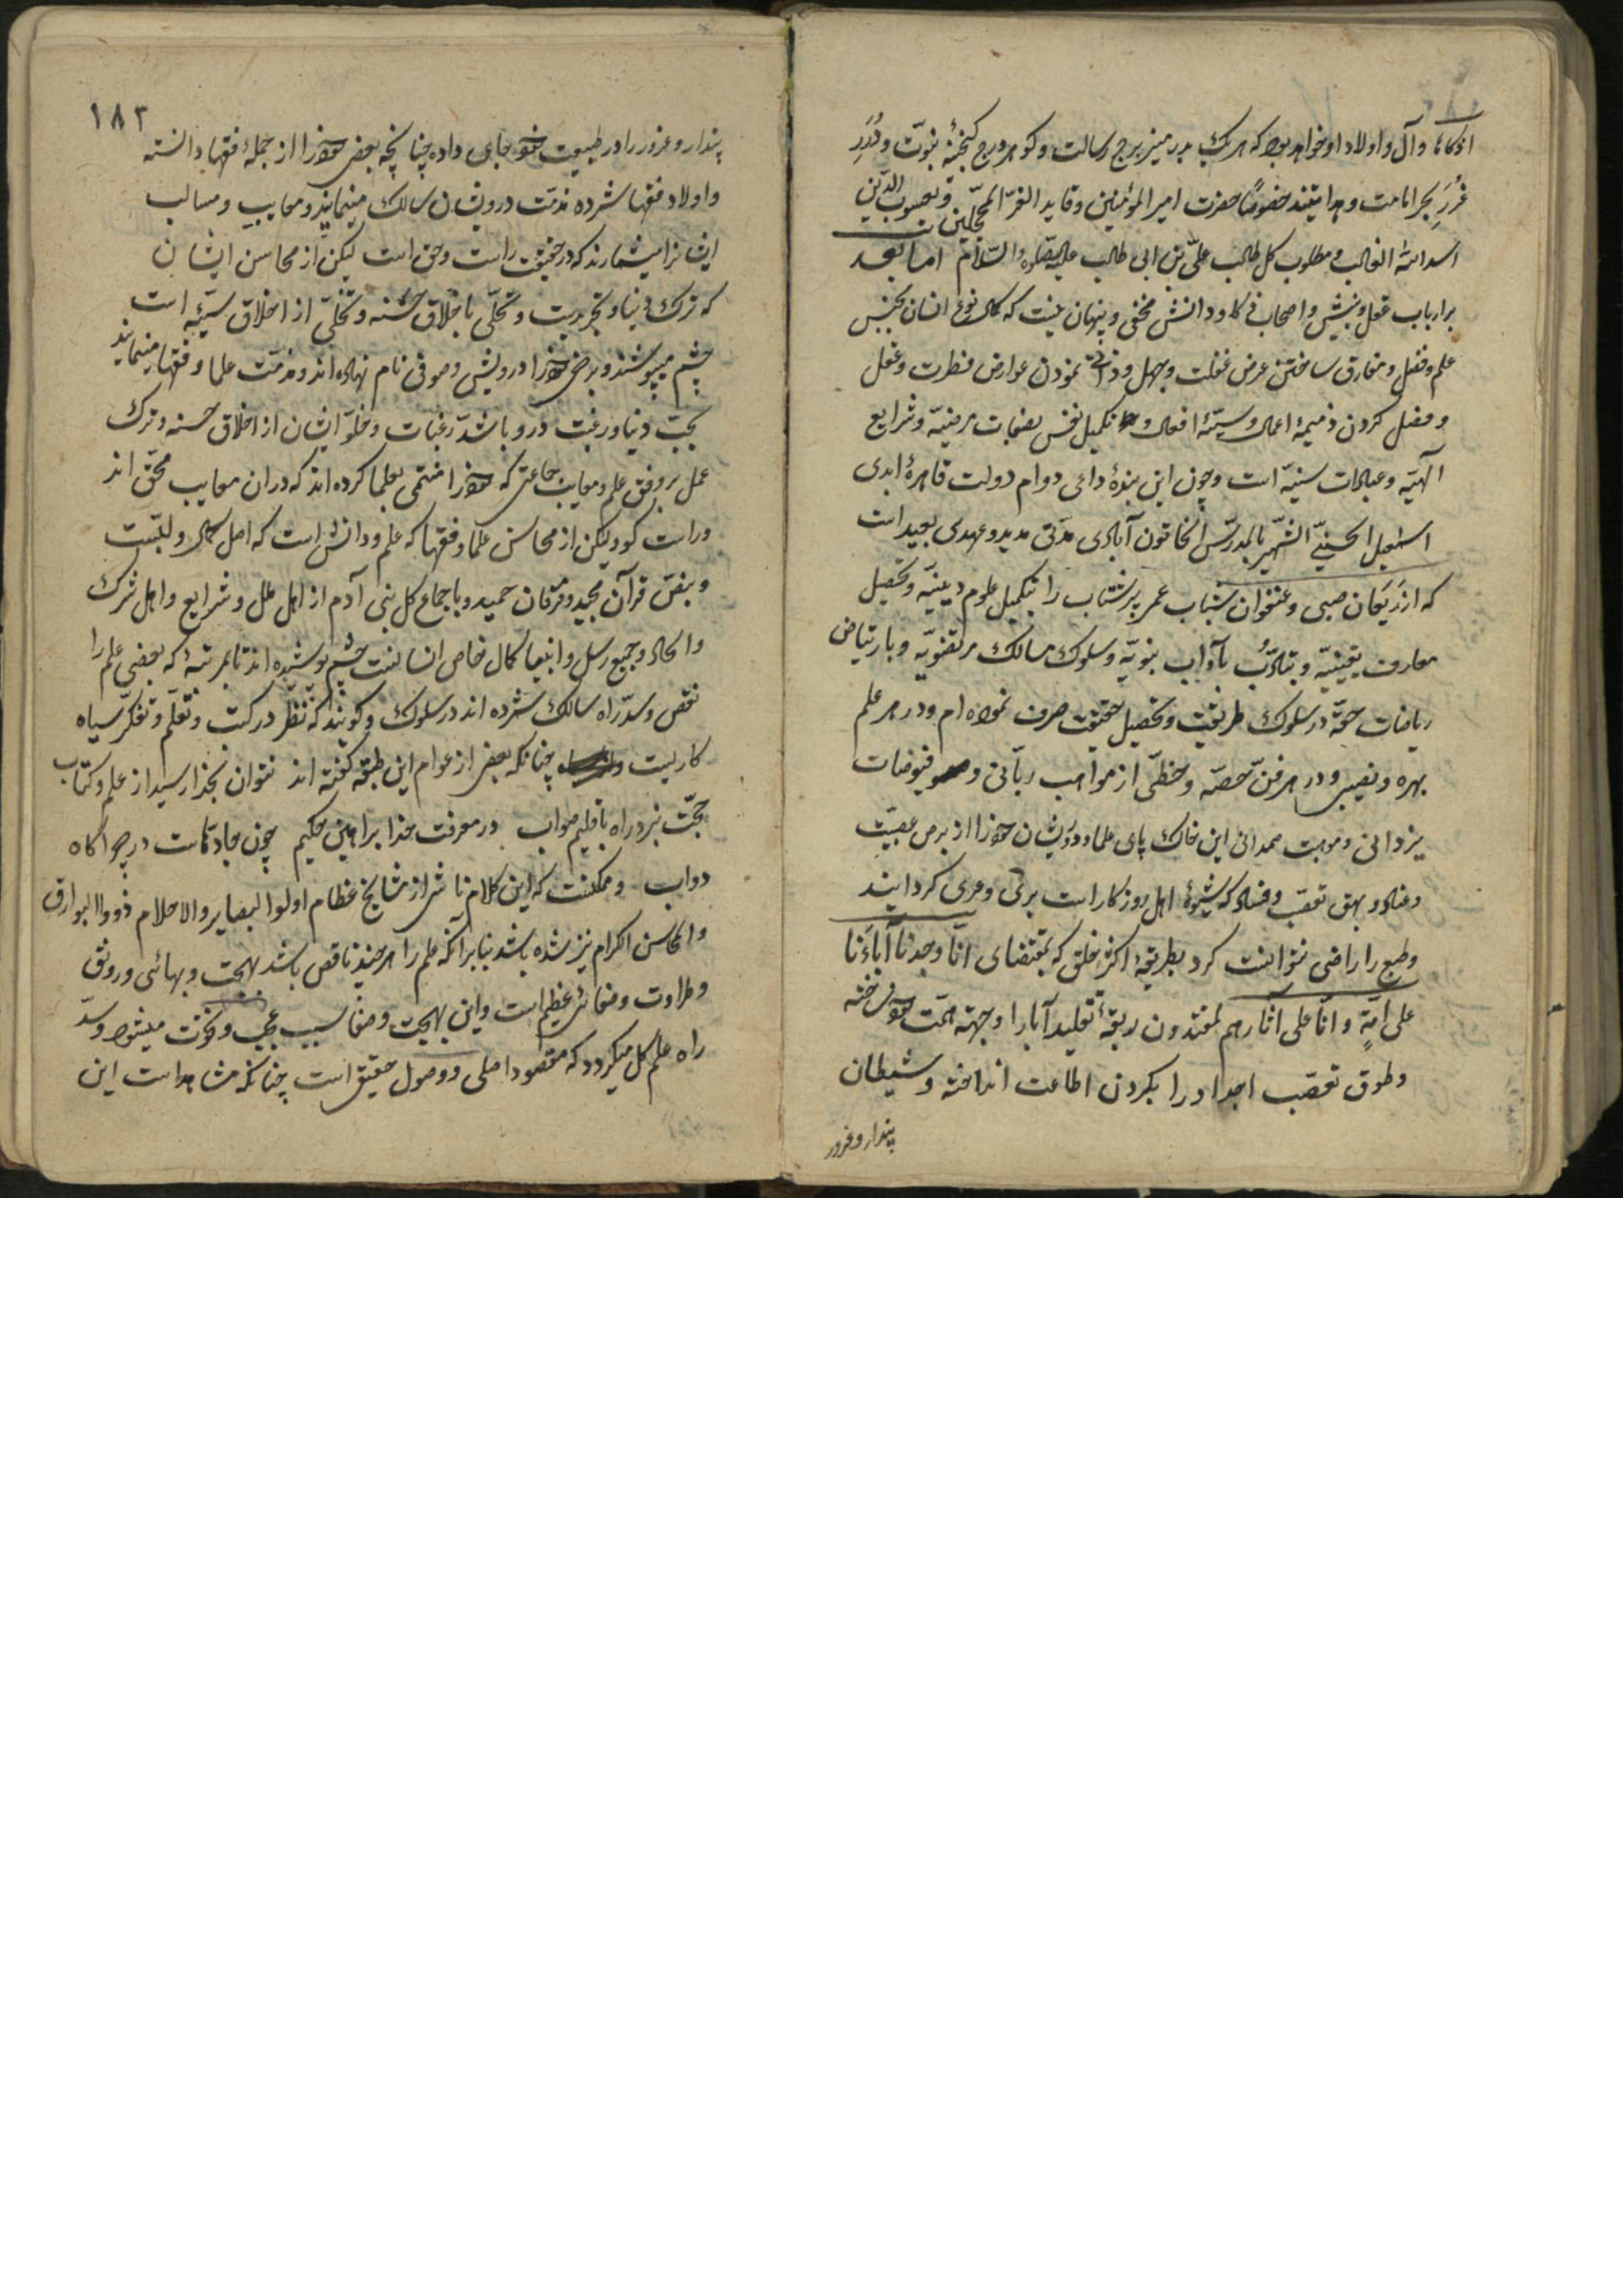 ازکانا و آل و اولاد او خواهد بود که هر یک بدر منیر برج رسالت و گوهر درج گنجینهٔ نبوّت و دُرَرِ
غُرَرِ بحر امامت و هدایتند خصوصًا حضرت امیر المؤمنین و قاید الغرّ المحجّلین و یعسوب الدّین
اسد الله الغالب و مطلوب کل طالب علیّ بن ابی طالب علیه الصّلوة والسّلام اما بعد
بر ارباب عقل و بینش و اصحاب ذکا و دانش مخفی و پنهان نیست که کمال نوع انسان بجنس
علم و فضل و مفارق ساختن عرض غفلت و جهل و نمودن عوارض فطرت و عقل
و فصل کردن ذمیمهٔ اعمال و سیّئهٔ افعال و تکمیل نفس بصفات مرضیّه و شرایع
الٓهیّه و عبادات سنیّه است و چون این بندهٔ داعی دوام دولت قاهرهٔ ابدی
اسمعیل الحسینیّ الشّهیر بالمدرّس الخاتون آبادی مدّتی مدید و عهدی بعید است
که از رَیَعان صبی و عنفوان شباب عمر پرشتاب را بتکمیل علوم دینیّه و تحصیل
معارف یقینیّه و بتادّب بآداب نبویّه و سلوک مسالک مرتضویّه و بارتیاض
ریاضات حقّه در سلوک طریقت و تحصیل حقیقت صرف نموده ام و در هر علم
بهره و نصیبی و در هر فنّ حصّه و حظّی از مواهب ربّانی و فیوضات
یزدانی و موهبت صمدانی این خاک پای علما و درویشان خود را از برص عصبیّت
و عناد و بهق تعصّب و فساد که شیوهٔ اهل روزکار است بریّ و عری کردانیند
و طبع را راضی نتوانست کرد بطریقهٔ اکثر خلق که بمقتضای انّا وجدنا آباءنا
علی امّةٍ و انّا علی آثارهم لمقتدون ربقهٔ تقلید آبا را وجههٔ همّت خود ساخته
و طوق تعصّب اجداد را بکردن اطاعت انداخته و شیطان
پندار و غرور
١٨٣
پندار و غرور را در طبیعت خود جای داده چنانچه بعضی خود را از جملهٔ فقها دانسته
و اولاد فقها شمرده مذمّت درویشان سالک مینمایند و معایب و مسالب
ایشانرا میشمارند که در حقیقت راست و حق است لیکن از محاسن ایشان
که ترک دنیا و تجرید یست و تحلّی باخلاق حسنه و تخلّی از اخلاق سیّئه است
چشم میپوشند و برخی خود را درویش و صوفی نام نهاده اند و مذمّت علما و فقها مینمایند
بحبّ دنیا و رغبت درو باشدّ رغبات و خلوّ ایشان از اخلاق حسنه و ترک
عمل بروفق علم و معایب جماعتی که خود را منتمی بعلما کرده اند که در ان معایب محق اند
و راست کو و لیکن از محاسن علما و فقها که علم و دانش است که اصل کمال و للیّست
و بنصّ قرآن مجید و فرقان حمید و باجماع کل بنی آدم از اهل ملل و شرایع و اهل شرک
و الحاد و جمیع رسل و انبیا کمال خاص انسانست چشم پوشیده اند تا بمرتبهٔ که بعضی علم را
نقص و سدّ راه سالک شمرده اند در سلوک و کویند که نظر در کتب و تعلّم و تفکر سیاه
کاریست چنانکه بعضی از عوام این طبقه کفته اند نتوان بخدا رسید از علم و کتاب
حجّت نبرد راه باقلیم صواب در معرفت خدا براهین حکیم چون جادّهاست در چراکاه
دواب و ممکنست که این کلام ناشی از مشایخ عظام اولوا البصایر والاحلام ذووا البوارق
والمحاسن الکرام نیز شده باشد بنابر آنکه علم را هرچند ناقص باشد بهجت و بهائی و رونق
و طراوت و صفائی عظیم است و این بهجت و صفا سبب عجب و نخوت میشود و سدّ
راه علم کل میکردد که مقصود اصلی و وصول حقیقی است چنانکه مشاهد است این